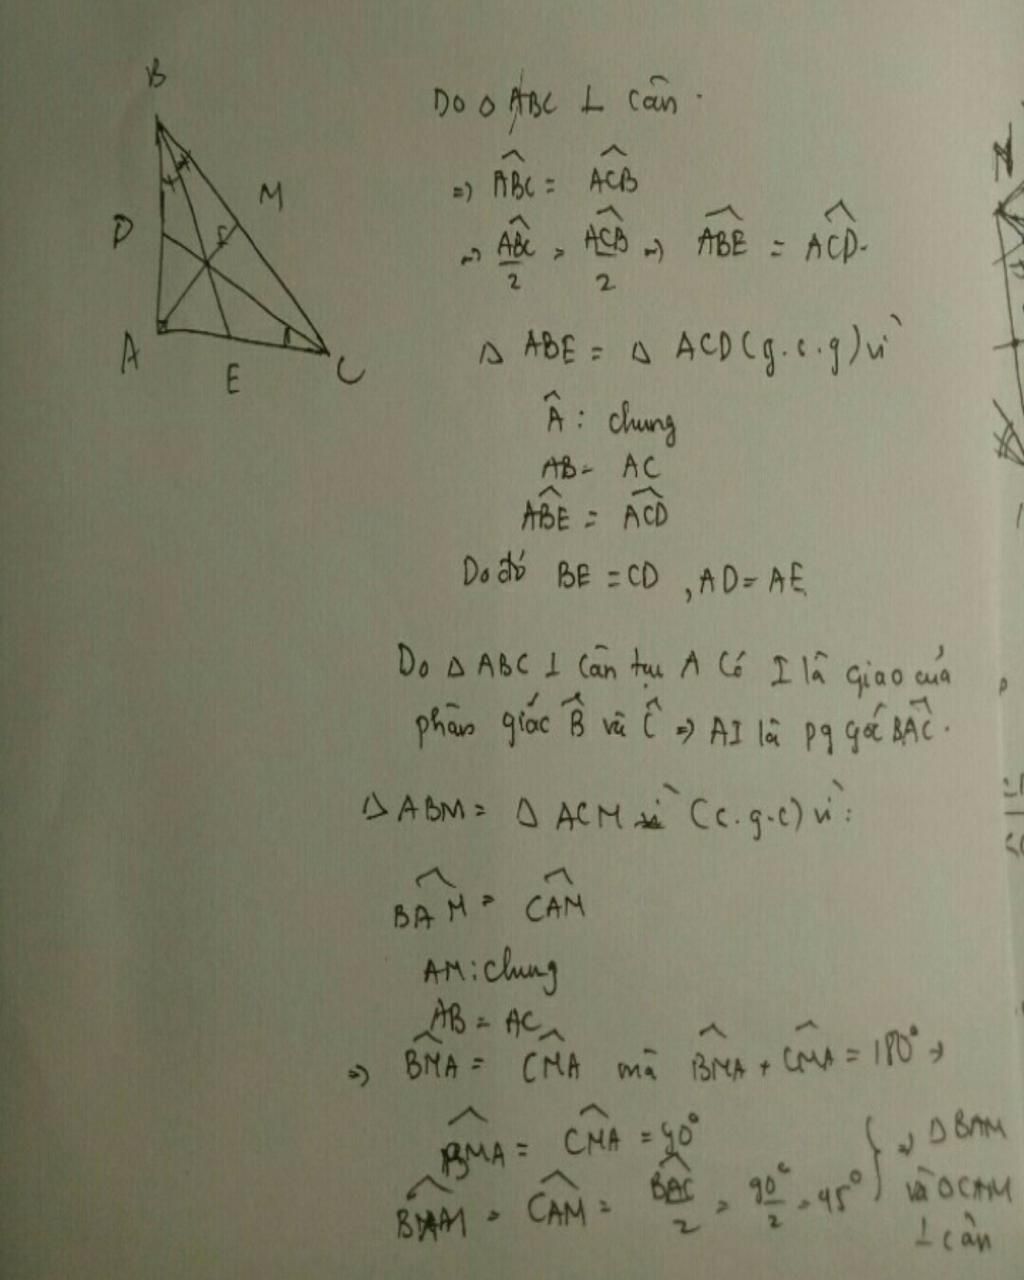 B
M
D
A
E
C
Do Δ ABC ⊥ cân.
=) ABC = ACB
=> ABC/2 = ACB/2 => ABE = ACD.
Δ ABE = Δ ACD (g.c.g) vì
Â : chung
AB = AC
ABE = ACD
Do đó BE = CD , AD = AE
Do Δ ABC ⊥ cân tại A Có I là giao của
phân giác B̂ và Ĉ => AI là pg góc BAC.
Δ ABM = Δ ACM (c.g.c) vì :
BAM = CAM
AM : chung
AB = AC
=> BMA = CMA mà BMA + CMA = 180° =>
BMA = CMA = 90°
BAM = CAM = BAC/2 = 90°/2 = 45° } => Δ BAM
và Δ CAM
⊥ cân
N